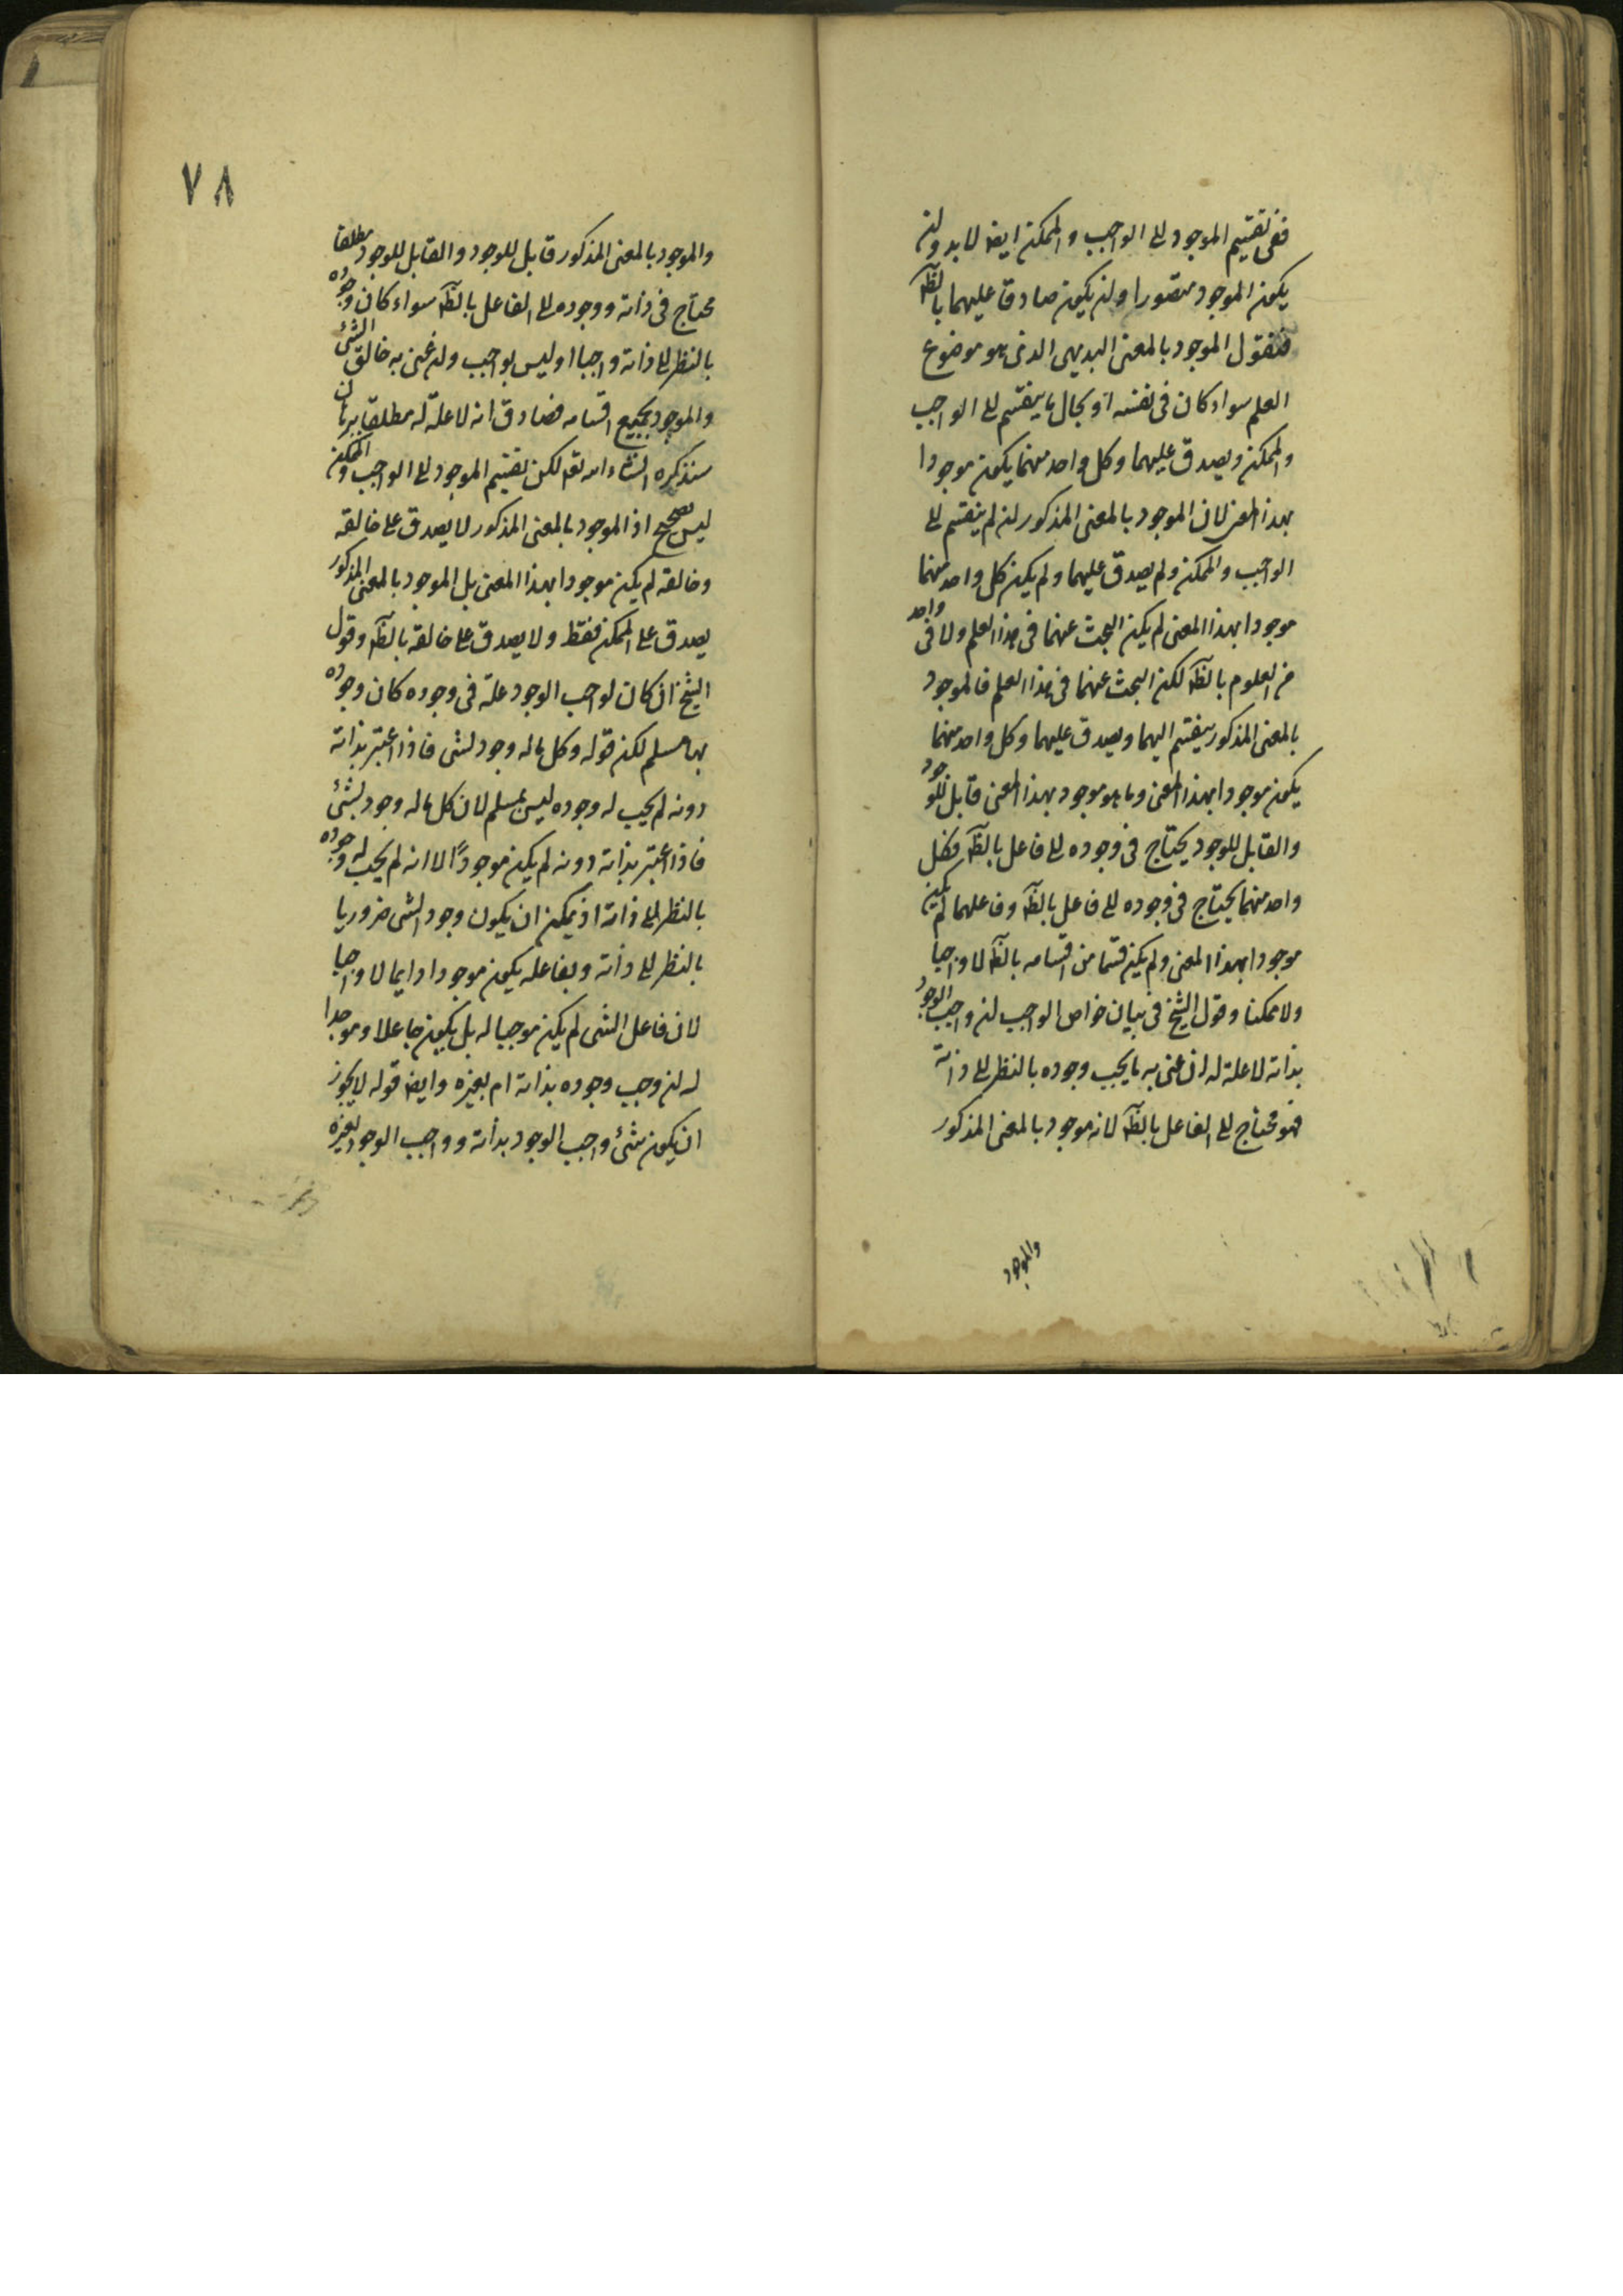 ففى تقسيم الموجود الى الواجب والممكن ايضا لا بد وان
يكون الموجود متصورا وان يكون صادقا عليهما بالظه
فنقول الموجود بالمعنى البديهى الذى هو موضوع
العلم سواء كان فى نفسه او بحال ما ينقسم الى الواجب
والممكن ويصدق عليهما وكل واحد منهما يكون موجودا
بهذا المعنى لان الموجود بالمعنى المذكور ان لم ينقسم الى
الواجب والممكن ولم يصدق عليهما ولم يكن كل واحد منهما
موجودا بهذا المعنى لم يكن البحث عنهما فى هذا العلم ولا فى واحد
من العلوم بالظه لكن البحث عنهما فى هذا العلم فالموجود
بالمعنى المذكور ينقسم اليهما ويصدق عليهما وكل واحد منهما
يكون موجودا بهذا المعنى وما هو موجود بهذا المعنى قابل للوجود
والقابل للوجود يحتاج فى وجوده الى فاعل بالظه فكل
واحد منهما يحتاج فى وجوده الى فاعل بالظه وفاعلهما لم يكن
موجودا بهذا المعنى ولم يكن قسما من اقسامه بالظه لا واجبا
ولا ممكنا وقول الشيخ فى بيان خواص الواجب ان واجب الوجود
بذاته لا علة له ان عنى به ما يجب وجوده بالنظر الى ذاته
فهو محتاج الى الفاعل بالظه لانه موجود بالمعنى المذكور
والموجود
٧٨
والموجود بالمعنى المذكور قابل للوجود والقابل للوجود مطلقا
محتاج فى ذاته ووجوده الى الفاعل بالظه سواء كان وجوده
بالنظر الى ذاته واجبا او ليس بواجب وان عنى به خالق الشئ
والموجود بجميع اقسامه فصادق انه لا علة له مطلقا ببرهان
سنذكره انشاء الله تعه لكن تقسيم الموجود الى الواجب والممكن
ليس بصحيح اذ الموجود بالمعنى المذكور لا يصدق على خالقه
وخالقه لم يكن موجودا بهذا المعنى بل الموجود بالمعنى المذكور
يصدق على الممكن فقط ولا يصدق على خالقه بالظه وقول
الشيخ ان كان لواجب الوجود علة فى وجوده كان وجوده
بها مسلم لكن قوله وكل ما له وجود لشى فاذا اعتبر بذاته
دونه لم يجب له وجوده ليس بمسلم لان كل ما له وجود بشئ
فاذا اعتبر بذاته دونه لم يكن موجودًا لا انه لم يجب له وجوده
بالنظر الى ذاته اذ يمكن ان يكون وجود الشى ضروريا
بالنظر الى ذاته وبفاعله يكون موجودا دايما لا واجبا
لان فاعل الشى لم يكن موجبا له بل يكون جاعلا وموجدا
له ان وجب وجوده بذاته ام بغيره وايضا قوله لا يجوز
ان يكون شئ واجب الوجود بذاته وواجب الوجود بغيره